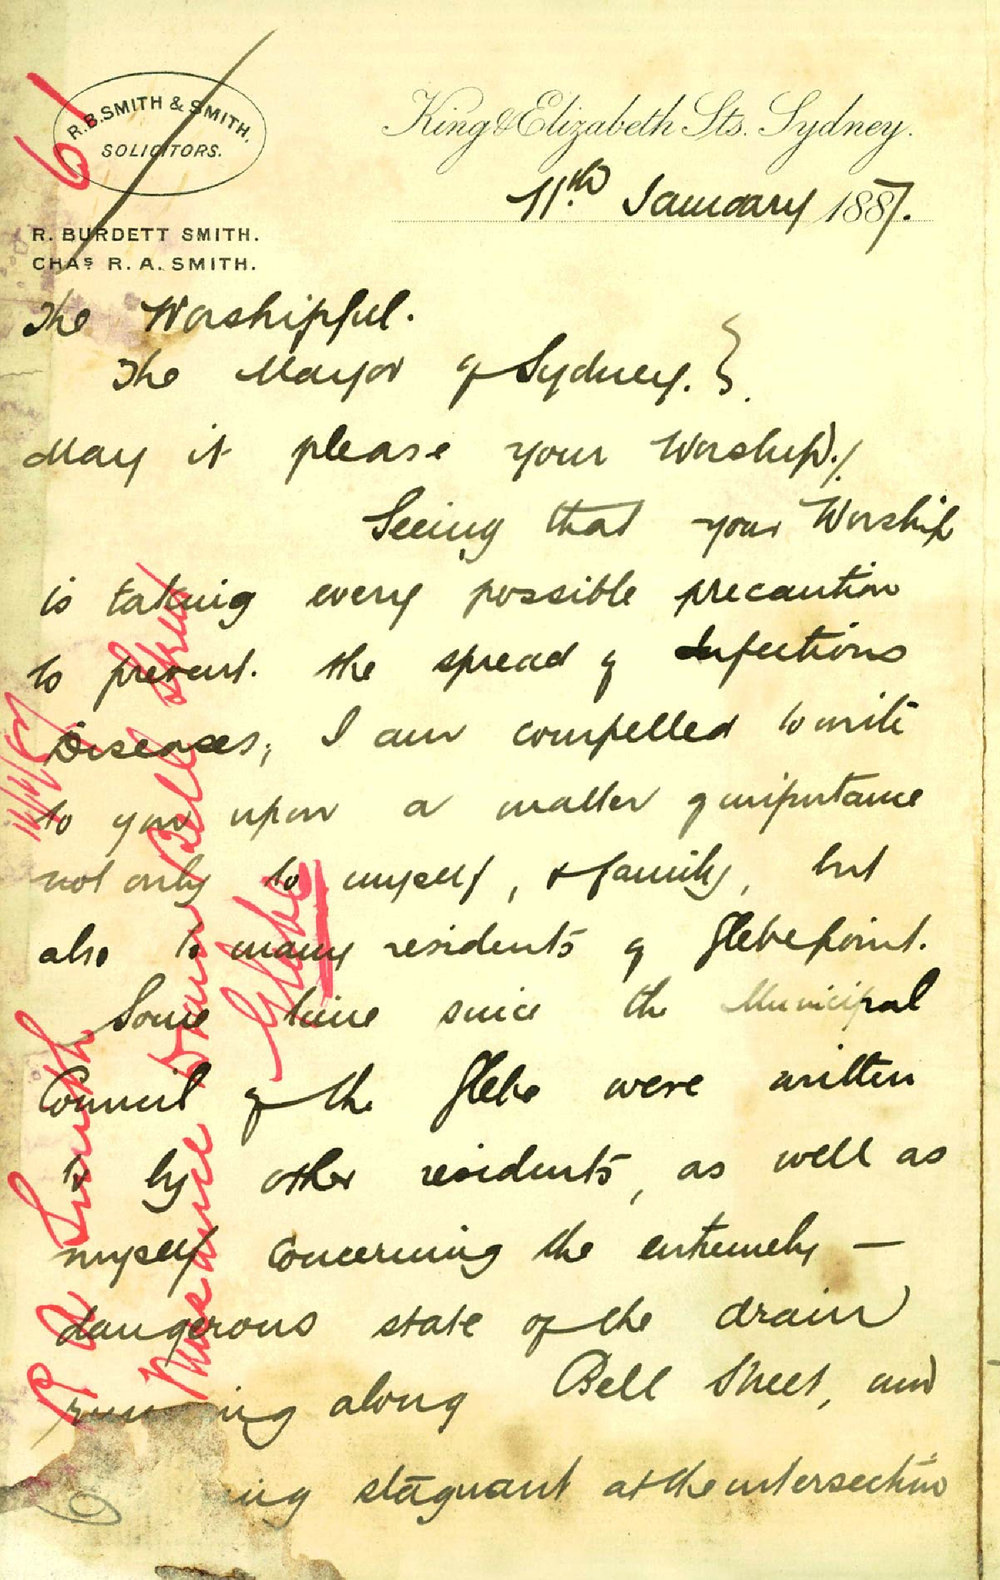 61
R.B. SMITH & SMITH.
SOLICITORS.
R. BURDETT SMITH.
CHAS R. A. SMITH.
King & Elizabeth Sts. Sydney.
11th January 1887.
The Worshipful.
The Mayor of Sydney.
May it please your Worship,
Seeing that your Worship
is taking every possible precaution
to prevent. the spread of Infectious
Diseases, I am compelled to write
to you upon a matter of importance
not only to myself, & family, but
also to many residents of Glebe point.
Some time since the Municipal
Council of the Glebe were written
to by other residents, as well as
myself concerning the extremely —
dangerous state of the drain
running along Bell Street, and
ing stagnant at the intersection
R A Smith
Nuisance Drain Bell Street
Glebe